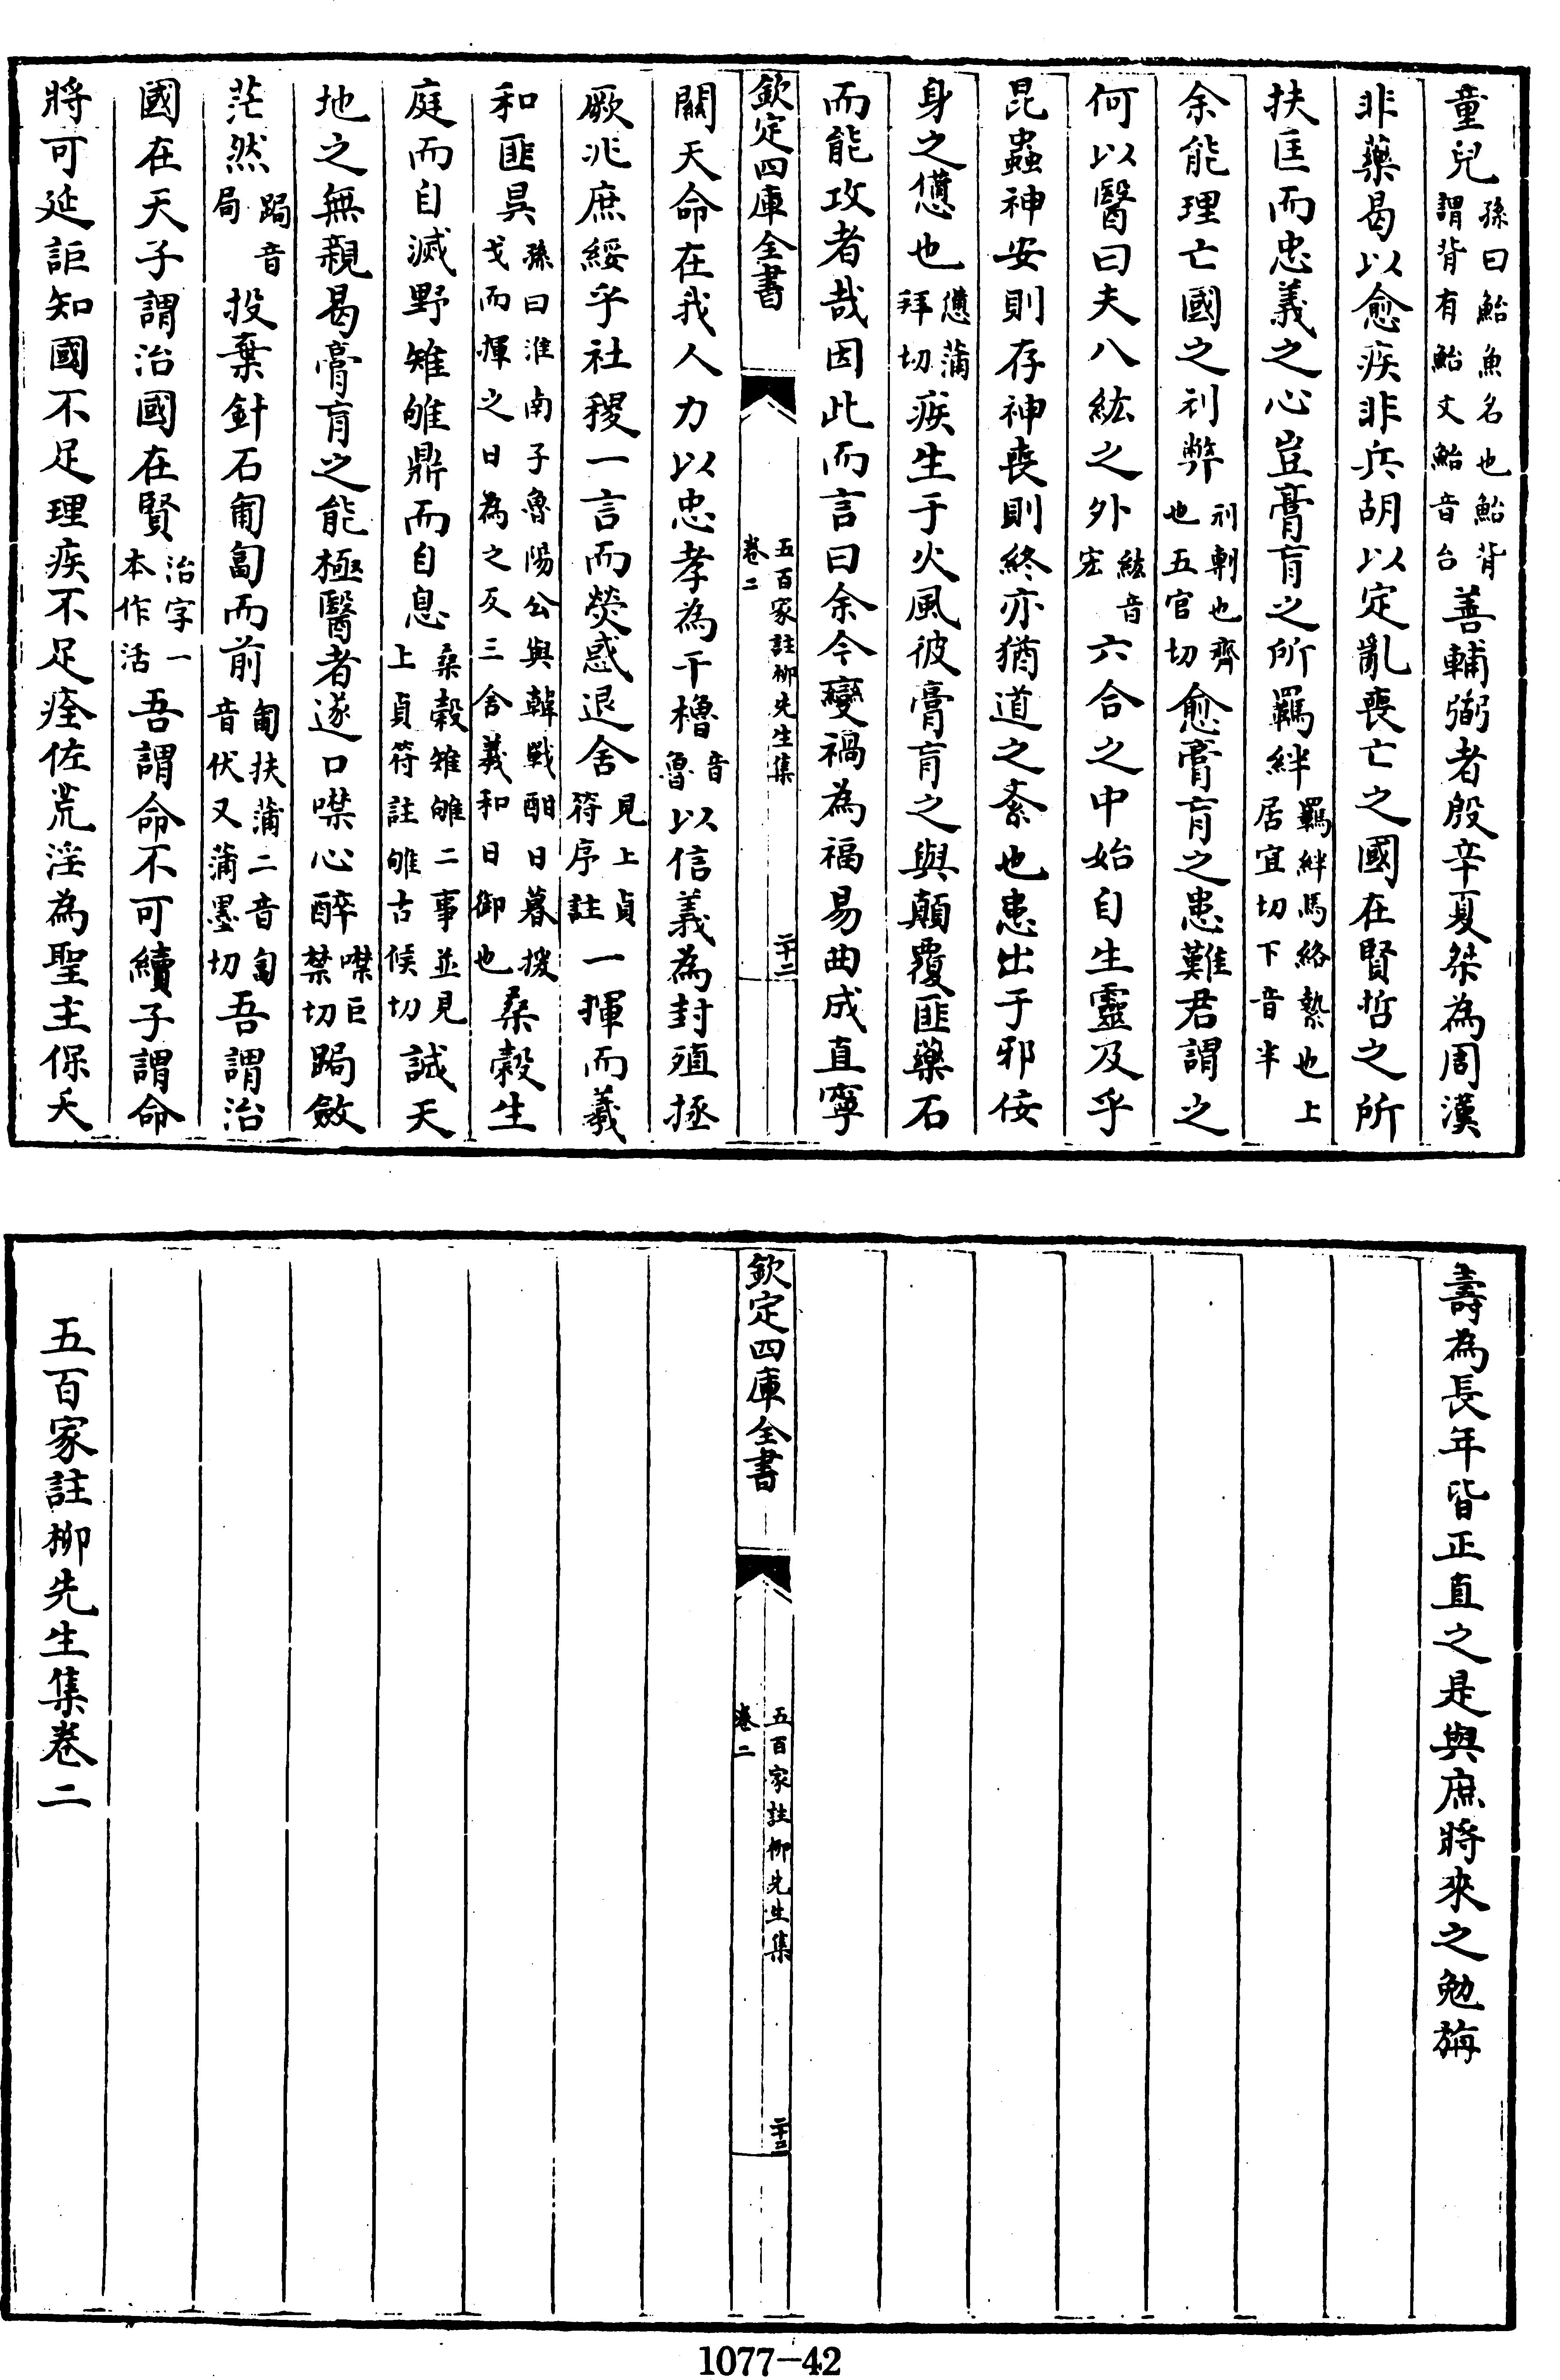 童兒孫曰鮐魚名也鮐背謂背有鮐文鮐音台善輔弼者殷辛夏桀為周漢
非藥曷以愈疾非兵胡以定亂喪亡之國在賢哲之所
扶匡而忠義之心豈膏肓之所羈絆羈絆馬絡縶也上居宜切下音半
余能理亡國之刓弊刓刺也齊也五官切愈膏肓之患難君謂之
何以醫曰夫八紘之外紘音宏六合之中始自生靈及乎
昆蟲神安則存神喪則終亦猶道之紊也患出于邪佞
身之憊也憊蒲拜切疾生于火風彼膏肓之與顛覆匪藥石
而能攻者哉因此而言曰余今變禍為福易曲成直寧
欽定四庫全書
五百家註柳先生集
卷二
二十二
關天命在我人力以忠孝為干櫓音魯以信義為封殖拯
厥兆庶綏乎社稷一言而熒惑退舍見上貞符序註一揮而羲
和匪昃孫曰淮南子魯陽公與韓戰酣日暮援戈而揮之日為之反三舍羲和日御也桑榖生
庭而自滅野雉雊鼎而自息桑榖雉雊二事並見上貞符註雊古候切誠天
地之無親曷膏肓之能極醫者遂口噤心醉噤巨禁切跼斂
茫然跼音局投棄針石匍匐而前匍扶蒲二音匐音伏又蒲墨切吾謂治
國在天子謂治國在賢治字一本作活吾謂命不可續子謂命
將可延詎知國不足理疾不足痊佐荒淫為聖主保夭
壽為長年皆正直之是與庶將來之勉旃
欽定四庫全書
五百家註柳先生集
卷二
二十三
五百家註柳先生集卷二
1077-42